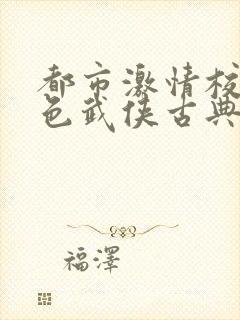 都市激情校
色武侠古典
福澤